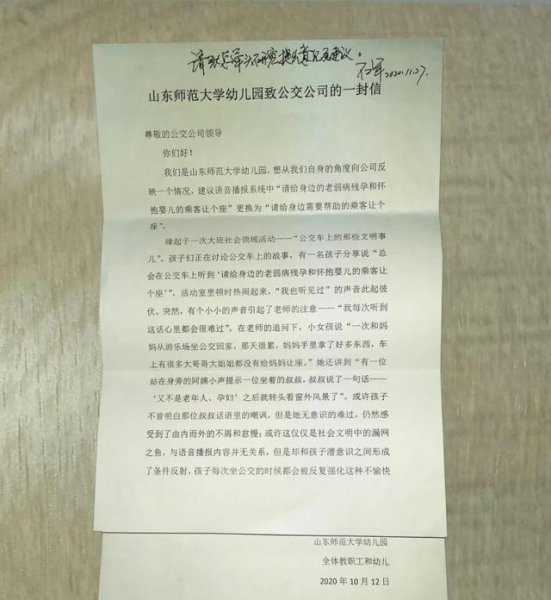 2020.11.27.
山东师范大学幼儿园致公交公司的一封信
尊敬的公交公司领导
你们好！
我们是山东师范大学幼儿园，想从我们自身的角度向公司反
映一个情况，建议语音播报系统中“请给身边的老弱病残孕和怀
抱婴儿的乘客让个座”更换为“请给身边需要帮助的乘客让个
座”。
缘起于一次大班社会领域活动——“公交车上的那些文明事
儿”，孩子们正在讨论公交车上的故事，有一名孩子分享说“总
会在公交车上听到‘请给身边的老弱病残孕和怀抱婴儿的乘客让
个座’”，活动室里顿时热闹起来，“我也听见过”的声音此起彼
伏，突然，有个小小的声音引起了老师的注意——“我每次听到
这话心里都会很难过”，在老师的追问下，小女孩说“一次和妈
妈从游乐场坐公交回家，那天很累，妈妈手里拿了好多东西，车
上有很多大哥哥大姐姐都没有给妈妈让座。”她还讲到“有一位
站在身旁的阿姨小声提示一位坐着的叔叔，叔叔说了一句话——
‘又不是老年人、孕妇’之后就转头看窗外风景了”。或许孩子
不曾明白那位叔叔话语里的嘲讽，但是她无意识的难过，仍然感
受到了由内而外的不屑和怠慢；或许这仅仅是社会文明中的漏网
之鱼，与语音播报内容并无关系，但是却和孩子潜意识之间形成
了条件反射，孩子每次坐公交的时候都会被反复强化这种不愉快
山东师范大学幼儿园
全体教职工和幼儿
2020 年 10 月 12 日